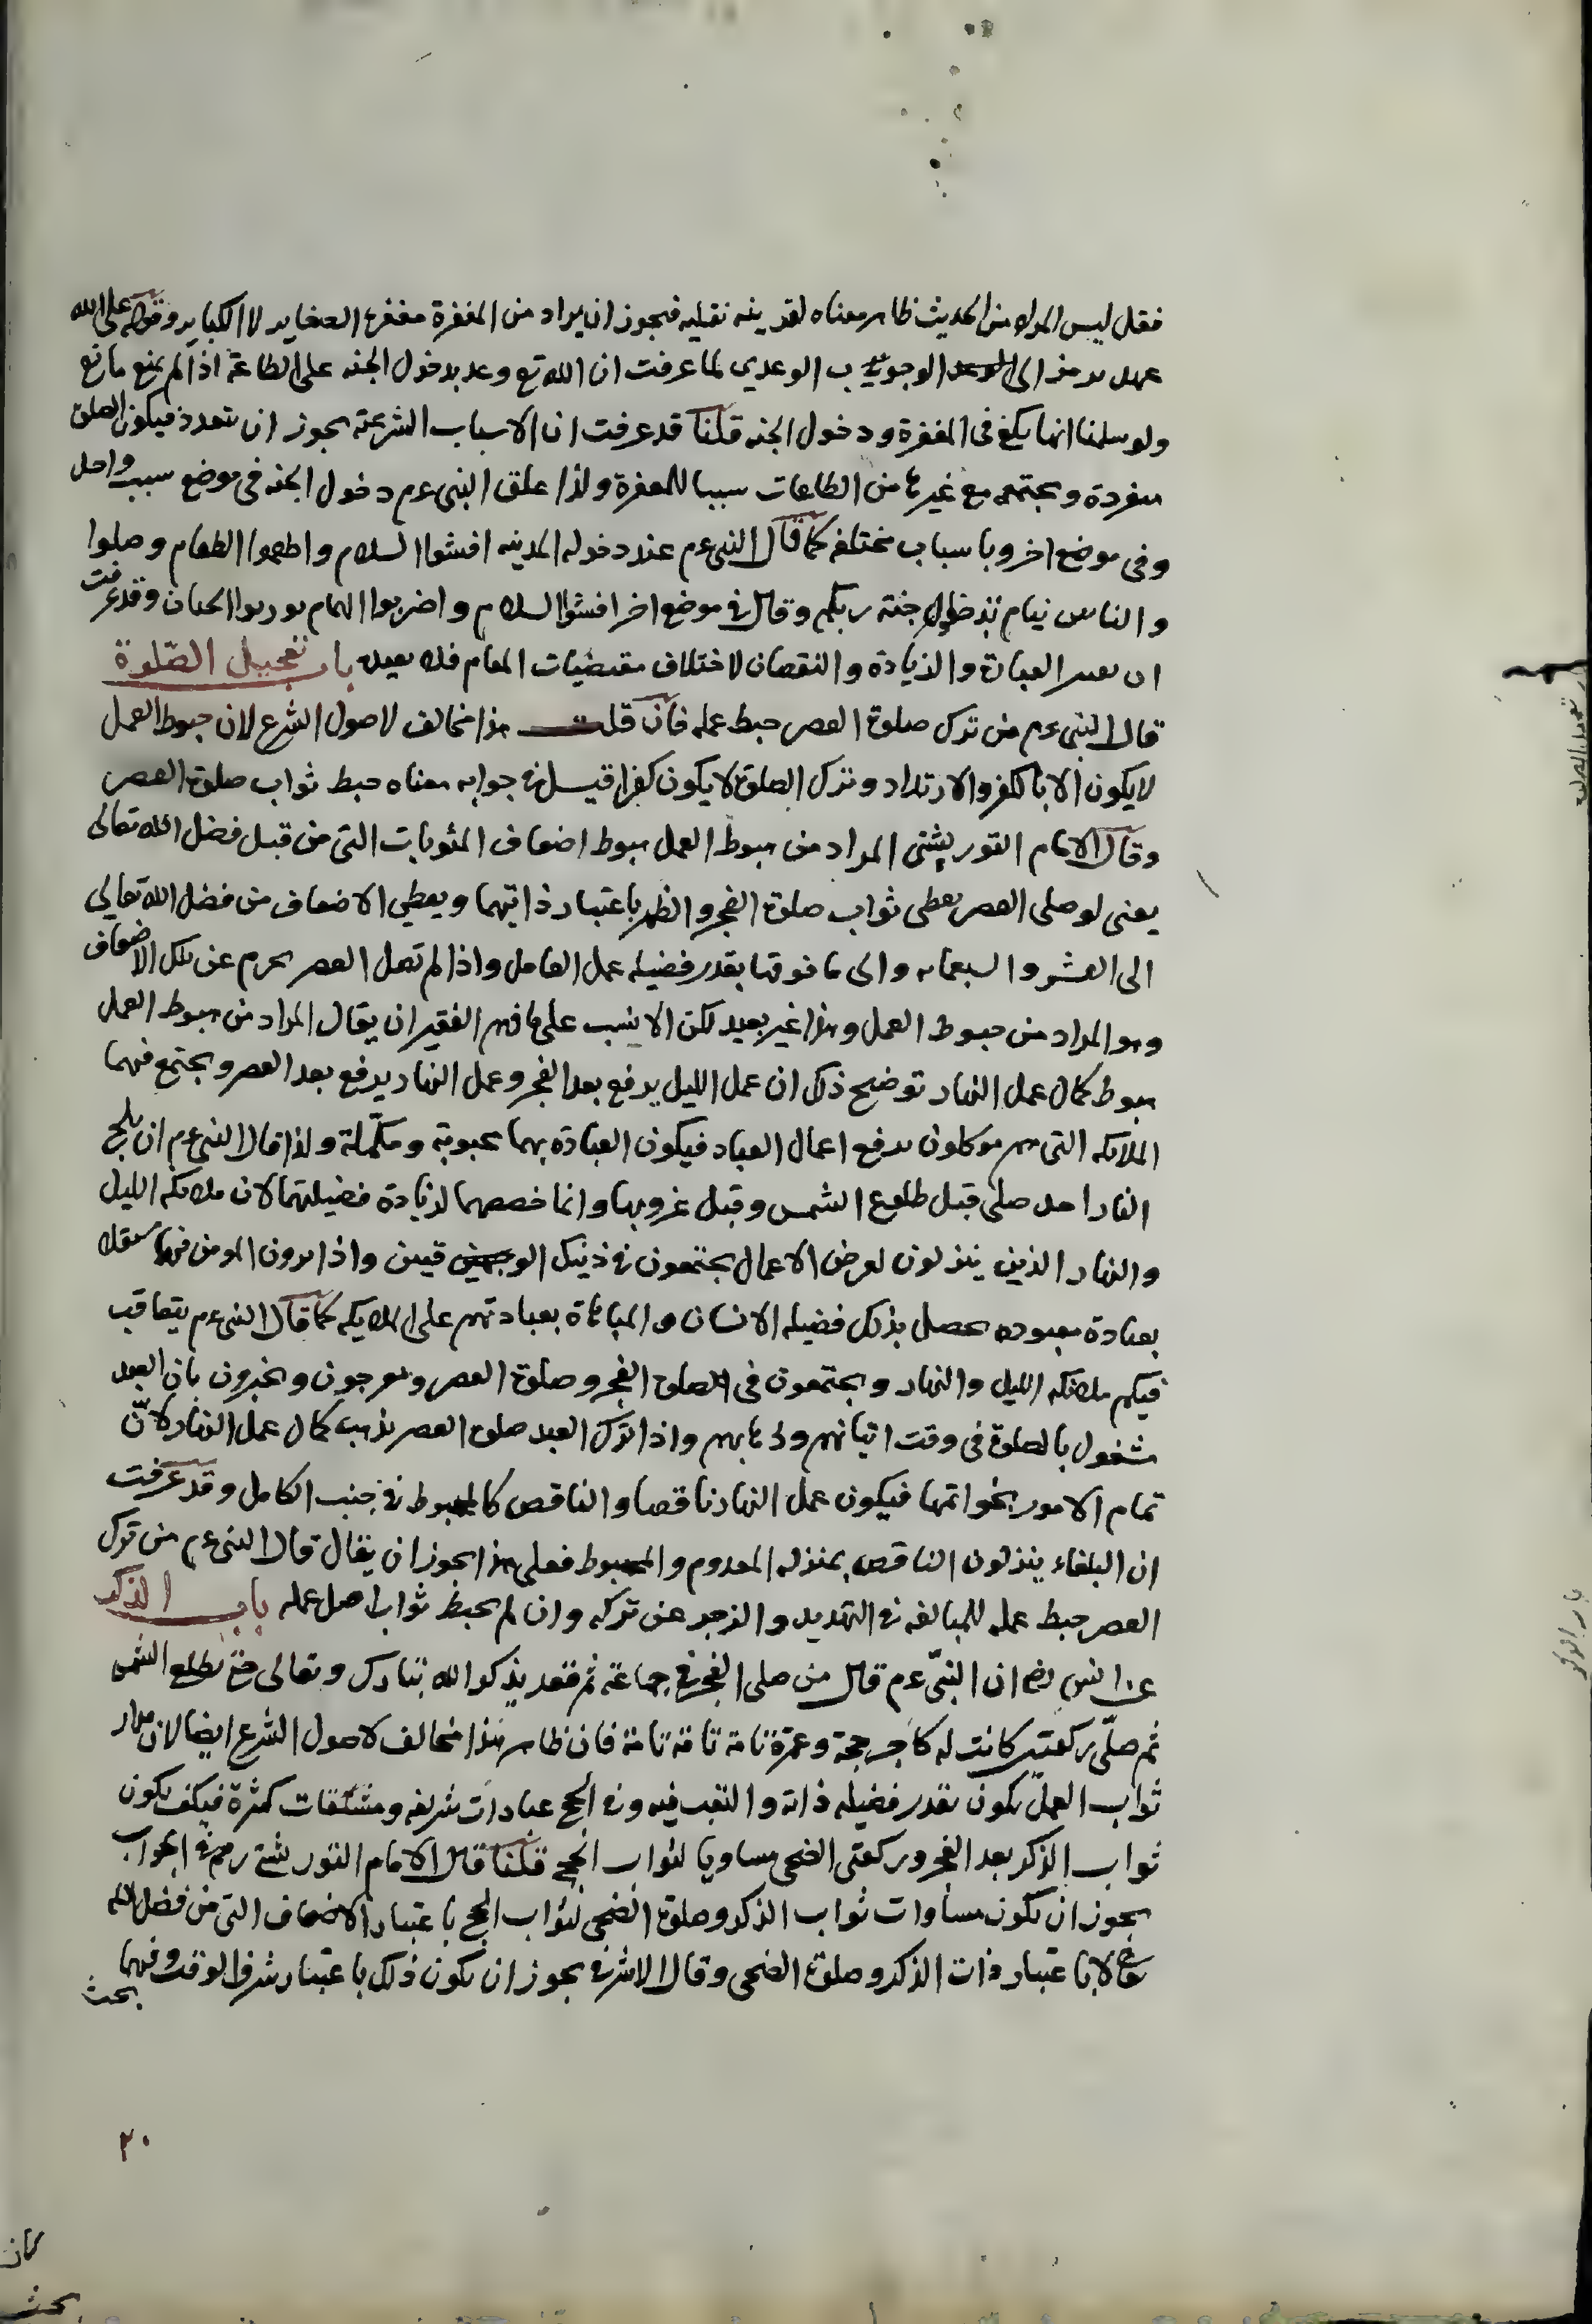 فقل ليس المراد من الحديث ظاهر معناه لقرينه نقليه فيجوز ان يراد من المغفرة مغفرة الصغاير لا الكباير وقوله على الله
عهد الوجوب الوعدي لما عرفت ان الله تع وعد بدخول الجنه على الطاعة اذا لم يمنع مانع
ولو سلمنا انها يكفي في المغفرة ودخول الجنه قلنا قد عرفت ان الاسباب الشرعية يجوز ان يتعدد فيكون الصلوة
منفردة ويجتمع مع غيرها من الطاعات سببا للمغفرة ولذا علق النبي عم دخول الجنه في موضع سبب واحد
وفي موضع اخر وباسباب مختلفه كما قال النبي عم عند دخوله المدينه افشوا السلام واطعموا الطعام وصلوا
والناس نيام تدخلوا جنة ربكم وقال في موضع اخر افشوا السلام واضربوا الهام تورثوا الجنان وقد عرفت
ان تغير العبارة والزيادة والنقصان لاختلاف مقتضيات المقام فلا نعيده باب تعجيل الصلوة
قال النبي عم من ترك صلوة العصر حبط عمله فان قلت هذا مخالف لاصول الشرع لان حبوط العمل
لا يكون الا بالكفر والارتداد وترك الصلوة لا يكون كفرا قيل في جوابه معناه حبط ثواب صلوة العصر
وقال الامام التورپشتي المراد من هبوط العمل هبوط اضعاف المثوبات التي من قبل فضل الله تعالى
يعني لو صلى العصر يعطى ثواب صلوة الفجر والظهر باعتبار ذاتيهما ويعطي الاضعاف من فضل الله تعالى
الى العشر والسبعمايه والى ما فوقها بقدر فضيله عمل العامل واذا لم تصل العصر يحرم عن تلك الاضعاف
وهو المراد من حبوط العمل وهذا غير بعيد لكن الانسب على ما فهم الفقير ان يقال المراد من هبوط العمل
هبوط كمال عمل النهار توضيح ذلك ان عمل الليل يرفع بعد الفجر وعمل النهار يرفع بعد العصر ويجتمع فيهما
الملائكه التي هم موكلون برفع اعمال العباد فيكون العبادة بهما محبوبة ومكملة ولذا قال النبي عم ان يلج
النار احد صلى قبل طلوع الشمس وقبل غروبها وانما خصصهما لزيادة فضيلتهما لان ملائكه الليل
والنهار الذين ينزلون لعرض الاعمال يجتمعون في ذينك الوقتين واذا يرون المؤمن فيهما
بعبادة معبوده يحصل بذلك فضيله الانسان والمباهاة بعبادتهم على الملايكه كما قال النبي عم يتعاقب
فيكم ملائكه الليل والنهار ويجتمعون في الصلوة الفجر وصلوة العصر ويعرجون ويخبرون بان العبد
مشغول بالصلوة في وقت اتيانهم وذهابهم واذا ترك العبد صلوة العصر يذهب كمال عمل النهار لان
تمام الامور بخواتمها فيكون عمل النهار ناقصا والناقص كالهبوط في جنب الكامل وقد عرفت
ان البلغاء ينزلون الناقص بمنزله المعدوم والهبوط فعلى هذا يجوز ان يقال قال النبي عم من ترك
العصر حبط عمله للمبالغه في التهديد والزجر عن تركه وان لم يحبط ثواب اصل عمله باب الذكر
عن انس رضي ان النبي عم قال من صلى الفجر في جماعة ثم قعد يذكر الله تبارك وتعالى حتى تطلع الشمس
ثم صلى ركعتين كانت له كاجر حجة وعمرة تامة تامة تامة فان ظاهر هذا مخالف لاصول الشرع ايضا لان مدار
ثواب العمل يكون بقدر فضيله ذاته والتعب فيه وفي الحج عبادات شريفه ومشقات كثيرة فكيف يكون
ثواب الذكر بعد الفجر وركعتي الضحى مساويا لثواب الحج قلنا قال الامام التورپشتي رحمه في الجواب
يجوز ان يكون مساوات ثواب الذكر وصلوة الضحى لثواب الحج باعتبار الاضعاف التي من فضل الله
تعالى لا باعتبار ذات الذكر وصلوة الضحى وقال الاشرف يجوز ان يكون ذلك باعتبار شرف الوقت وفيهما
بحث
٢٠
باب الذكر